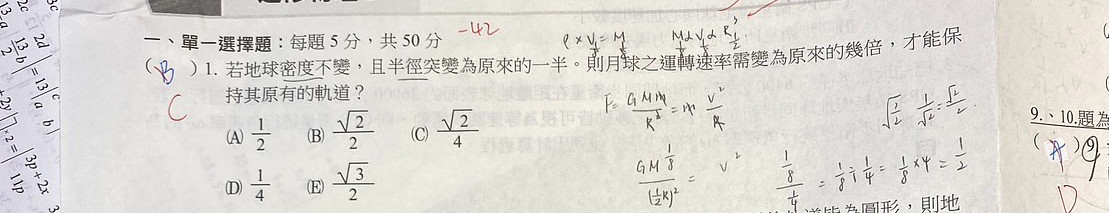 -42
一、單一選擇題：每題 5 分，共 50 分
ρ × V = M
M ∝ V ∝ R³
( B ) 1. 若地球密度不變，且半徑突變為原來的一半。則月球之運轉速率需變為原來的幾倍，才能保
持其原有的軌道？
C
(A) 1/2 (B) √2/2 (C) √2/4
(D) 1/4 (E) √3/2
F = GMm/R² = m v²/R
GM 1/8 / (½R)² = v²
√(1/2) 1/√2 = √2/2
1/8 / 1/4 = 1/8 ÷ 1/4 = 1/8 × 4 = 1/2
9.、10.題為
( A ) 9
D
道皆為圓形，則地